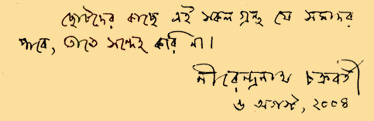 ছোটদের কাছে এই সকল গ্রন্থ যে সমাদর
পাবে, তাতে সন্দেহ করি না।
নীরেন্দ্রনাথ চক্রবর্তী
৬ অগস্ট, ২০০৪